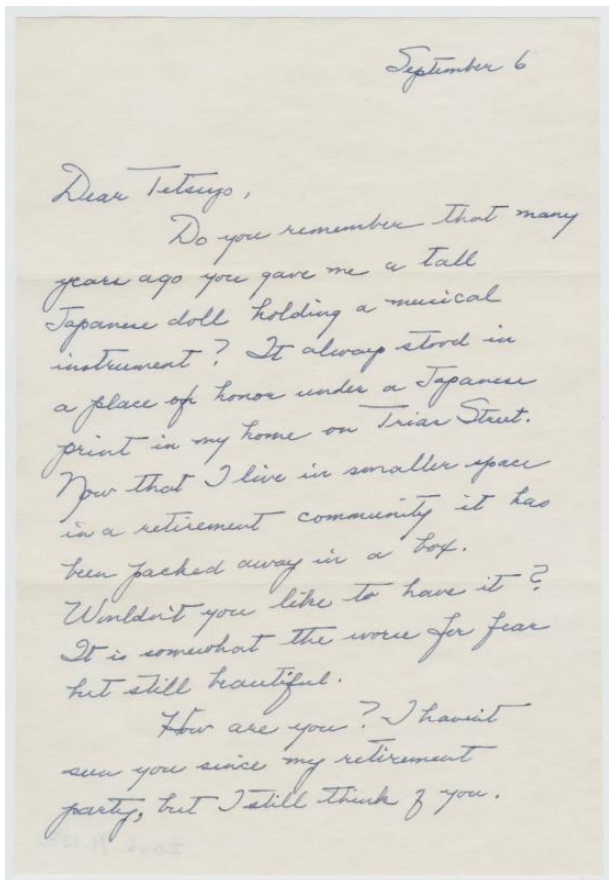 September 6
Dear Tetsuyo,
Do you remember that many
years ago you gave me a tall
Japanese doll holding a musical
instrument? It always stood in
a place of honor under a Japanese
print in my home on Street.
Now that I live in smaller space
in a retirement community it has
been packed away in a box.
Wouldn't you like to have it?
It is somewhat the worse for
but still beautiful.
How are you? I haven't
seen you since my retirement
party, but I still think of you.